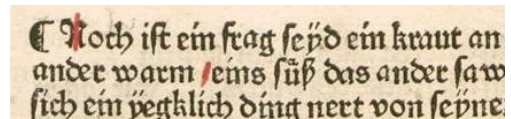 ¶ Noch iſt ein frag ſeÿd ein kraut an
ander warm /eins ſüͤß das ander ſaw
ſich ein ÿegklich ding nert von ſeÿne